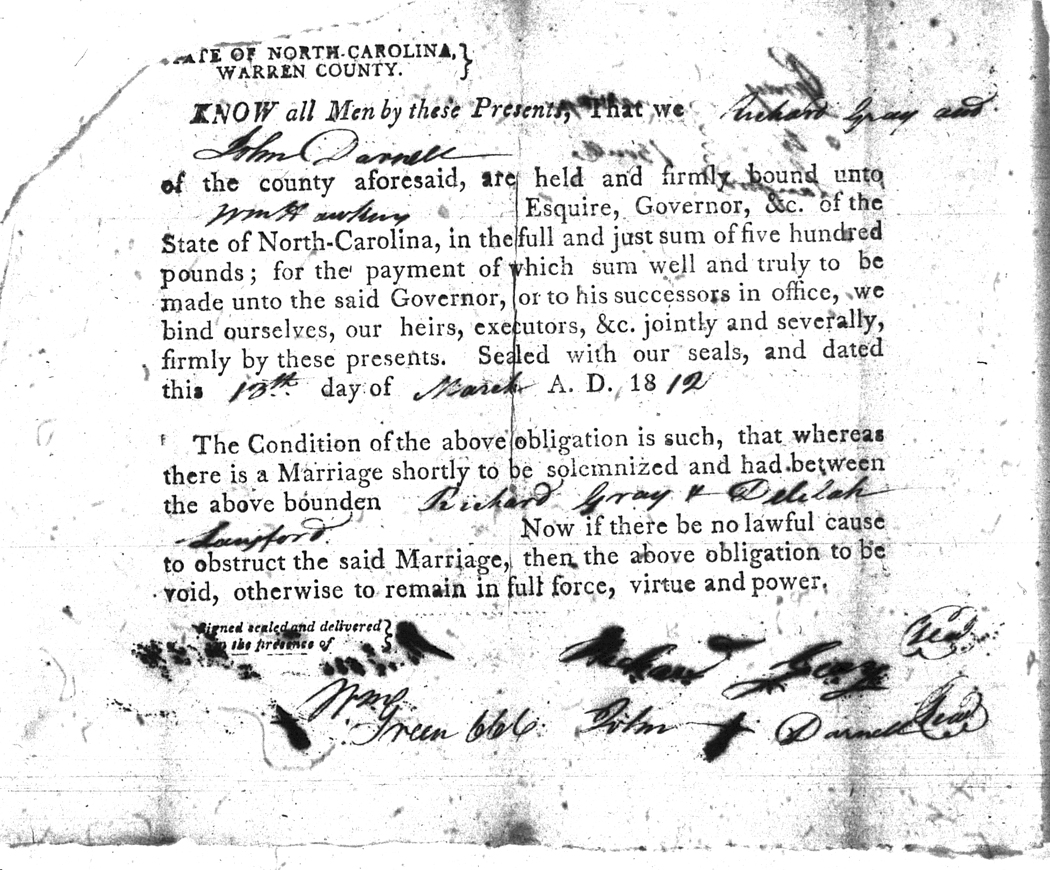 ATE OF NORTH-CAROLINA,
WARREN COUNTY.
KNOW all Men by these Presents, That we Richard Gray and
John Darnell
of the county aforesaid, are held and firmly bound unto
Wm Hawkins Esquire, Governor, &c. of the
State of North-Carolina, in the full and just sum of five hundred
pounds; for the payment of which sum well and truly to be
made unto the said Governor, or to his successors in office, we
bind ourselves, our heirs, executors, &c. jointly and severally,
firmly by these presents. Sealed with our seals, and dated
this 13th. day of March A. D. 1812
The Condition of the above obligation is such, that whereas
there is a Marriage shortly to be solemnized and had between
the above bounden Richard Gray & Delilah
Langford. Now if there be no lawful cause
to obstruct the said Marriage, then the above obligation to be
void, otherwise to remain in full force, virtue and power.
Signed sealed and delivered
in the presence of
Richard Gray Seal
Wm Green CCC John + Darnell Seal